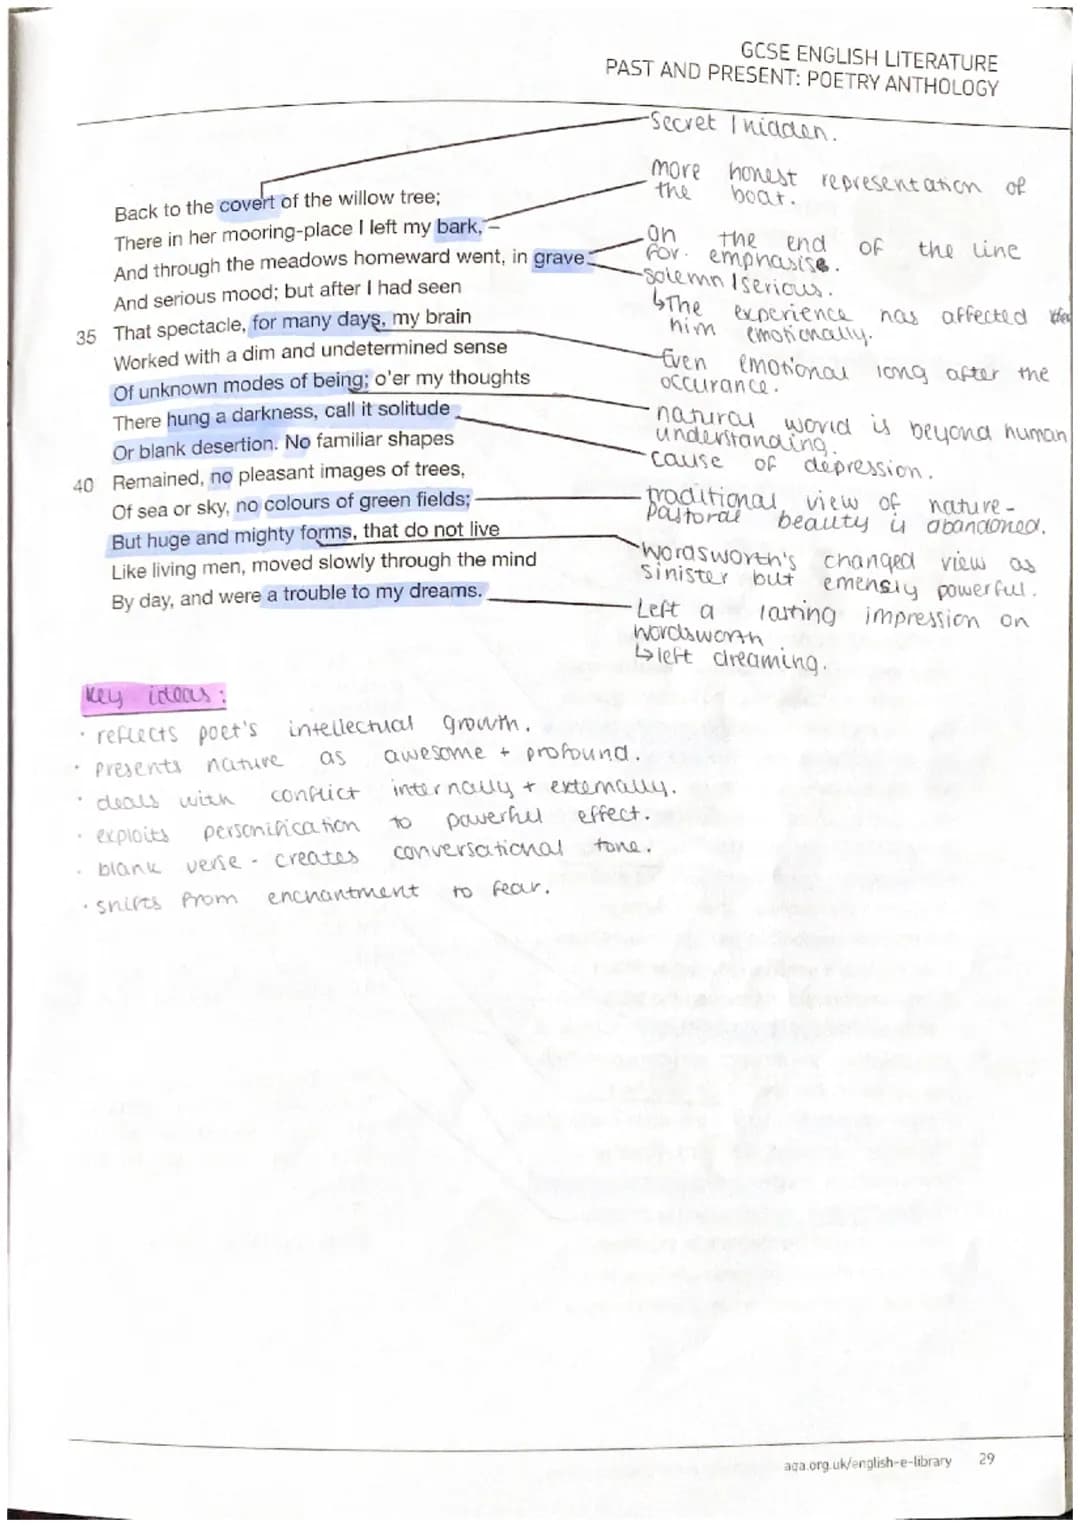 GCSE ENGLISH LITERATURE
PAST AND PRESENT: POETRY ANTHOLOGY
Back to the covert of the willow tree;
There in her mooring-place I left my bark, –
And through the meadows homeward went, in grave
And serious mood; but after I had seen
35 That spectacle, for many days, my brain
Worked with a dim and undetermined sense
Of unknown modes of being; o'er my thoughts
There hung a darkness, call it solitude
Or blank desertion. No familiar shapes
40 Remained, no pleasant images of trees,
Of sea or sky, no colours of green fields;
But huge and mighty forms, that do not live
Like living men, moved slowly through the mind
By day, and were a trouble to my dreams.
-Secret / hidden.
more honest representation of
the boat.
-on the end of the line
for emphasise.
-solemn / serious.
↳The experience has affected
him emotionally.
-Even emotional long after the
occurance.
-natural world is beyond human
understanding.
-cause of depression.
-traditional view of nature -
pastoral beauty is abandoned.
-Wordsworth's changed view as
sinister but emensly powerful.
-Left a lasting impression on
wordsworth
↳left dreaming.
key ideas:
· reflects poet's intellectual growth.
· presents nature as awesome + profound.
· deals with conflict internally + externally.
· exploits personification to powerful effect.
· blank verse - creates conversational tone.
· shifts from enchantment to fear.
aqa.org.uk/english-e-library 29